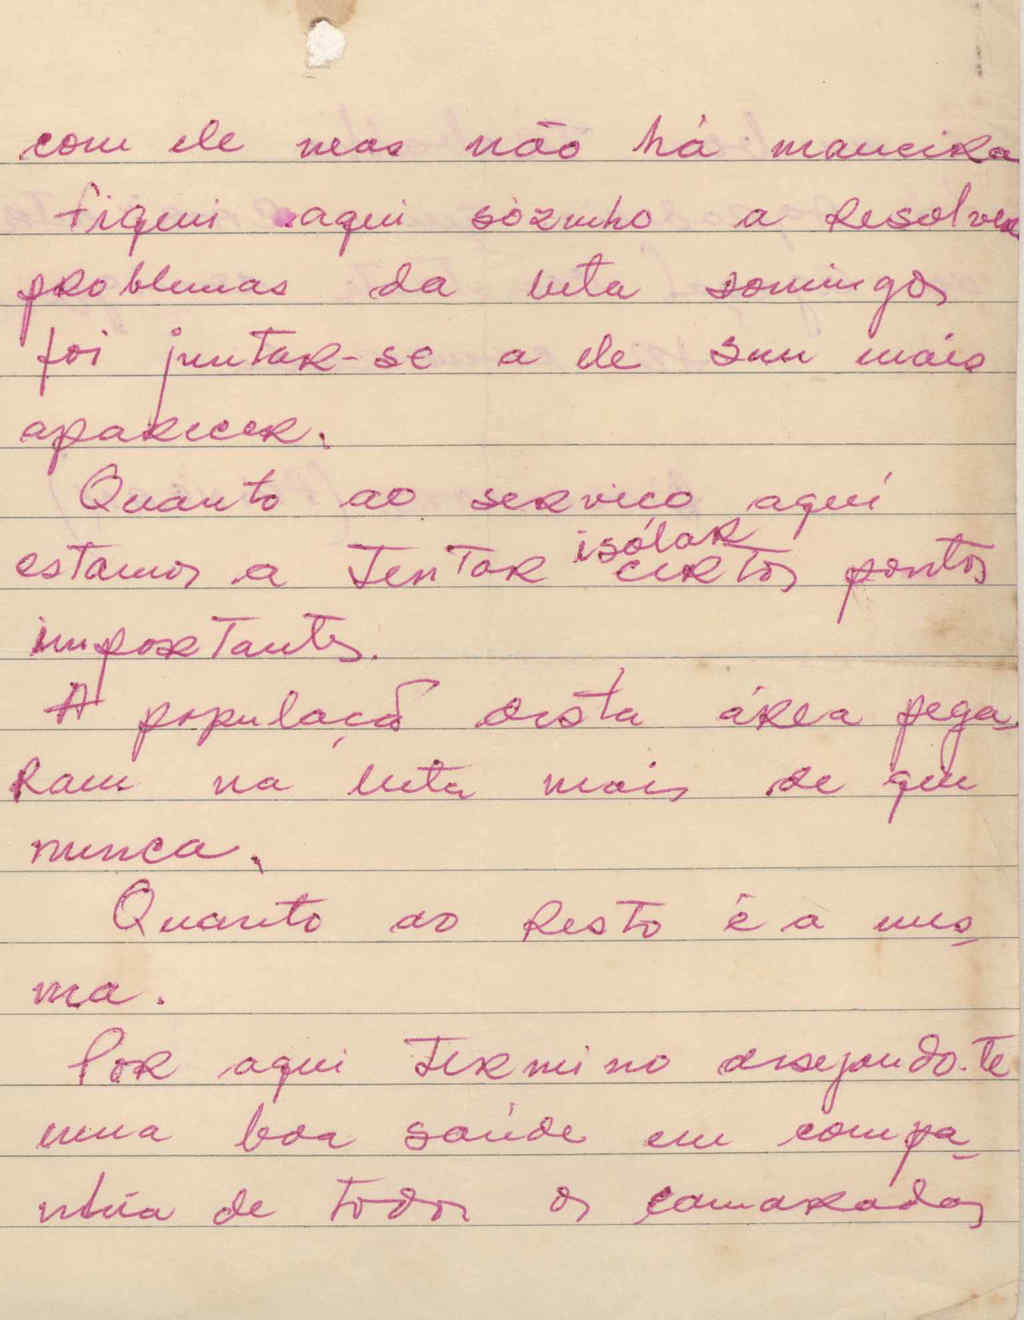 com ele mas não há maneira
fiquei aqui sózinho a resolver
problemas da luta domingos
foi juntar-se a ele sem mais
aparecer.
Quanto ao serviço aqui
estamos a tentar isólar certos pontos
importantes.
A população desta área pega-
ram na luta mais de que
nunca.
Quanto ao resto é a mes-
ma.
Por aqui termino desejando-te
uma boa saúde em compa-
nhia de todos os camaradas